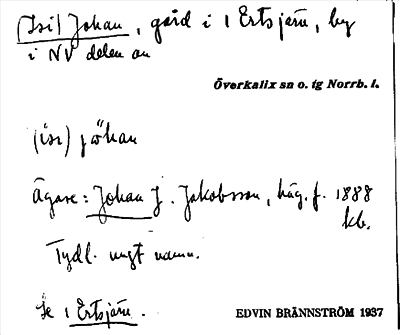 (Isi) Johan, gård i 1 Ertsjärv, by
i NV delen av
Överkalix sn o. tg Norrb. l.
(isi) jöhan
Ägare: Johan J. Jakobsson, häg. f. 1888
kb.
Tydl. ungt namn.
Se 1 Ertsjärv.
EDVIN BRÄNNSTRÖM 1937